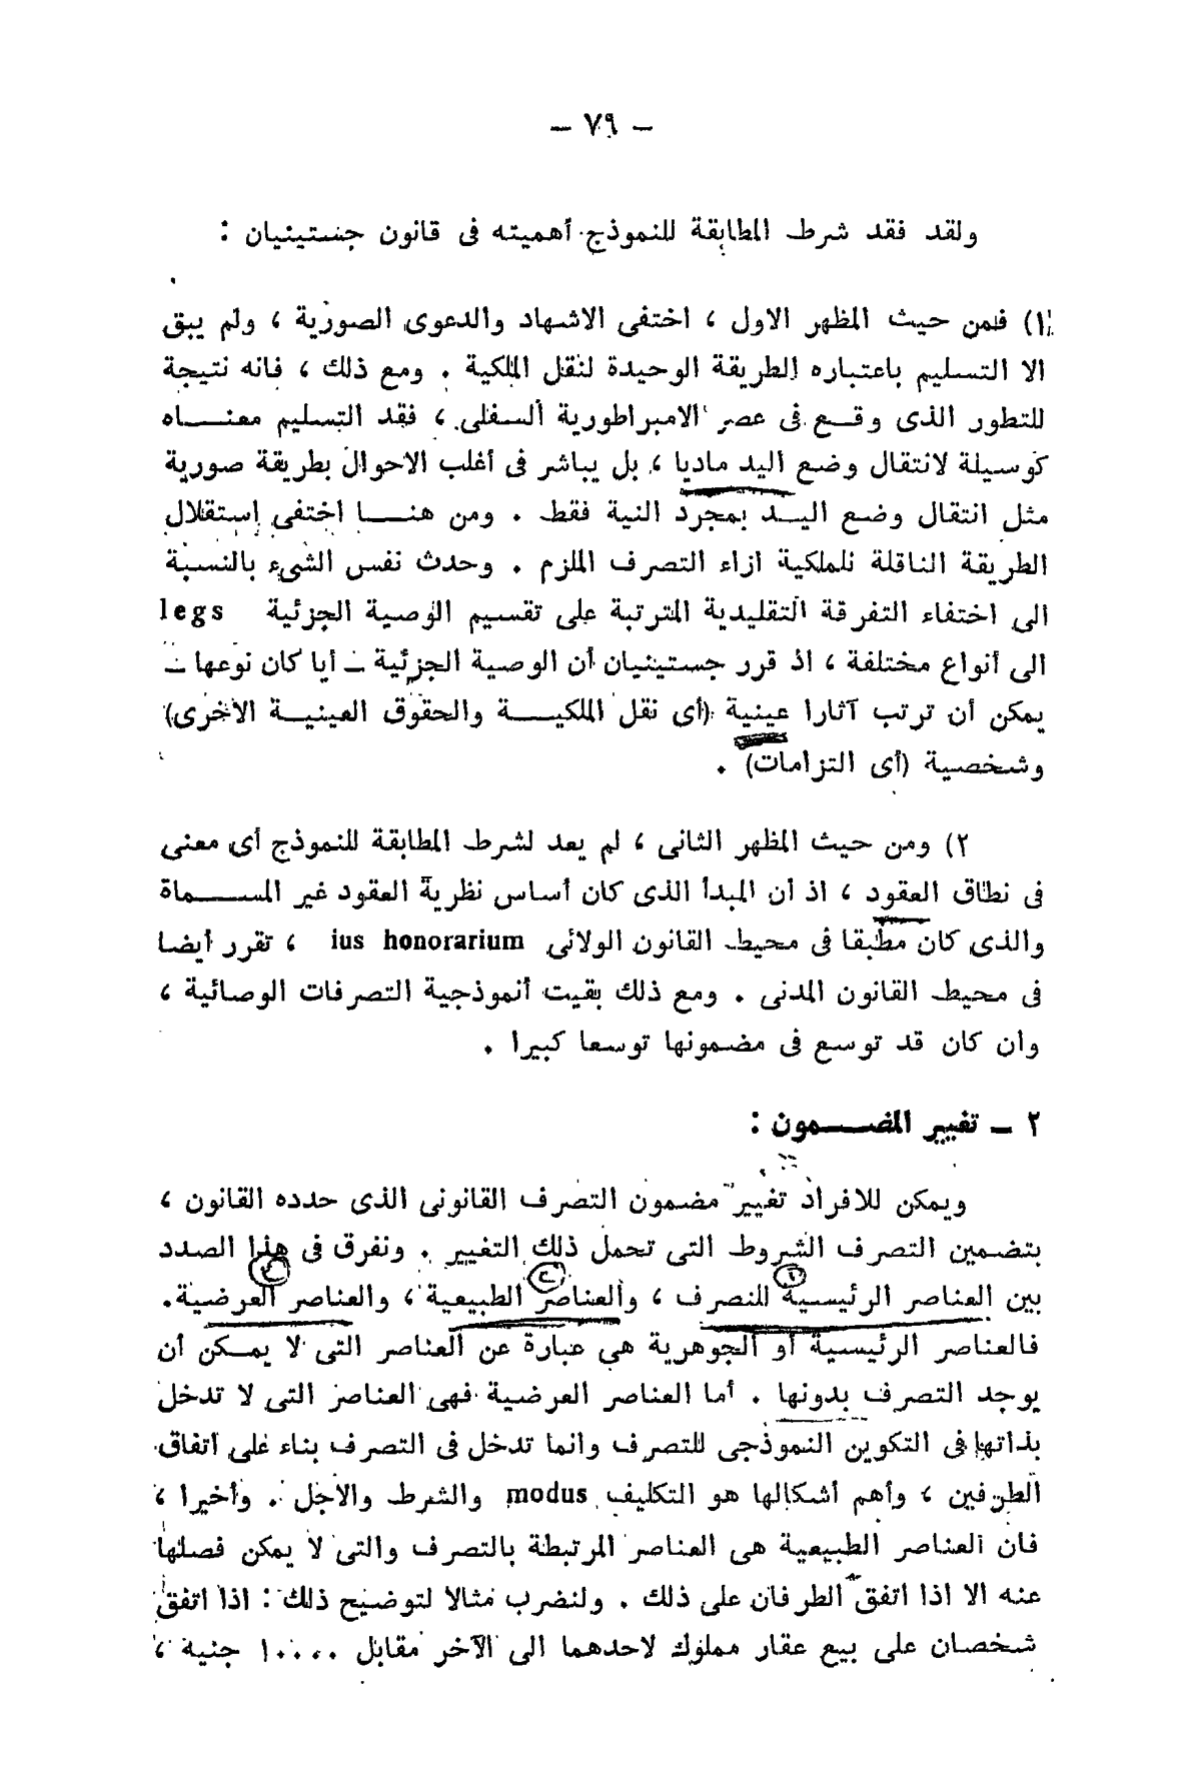 — ٧٩ —
ولقد فقد شرط المطابقة للنموذج أهميته فى قانون جستينيان :
١) فمن حيث المظهر الاول ، اختفى الاشهاد والدعوى الصورية ، ولم يبق
الا التسليم باعتباره الطريقة الوحيدة لنقل الملكية . ومع ذلك ، فانه نتيجة
للتطور الذى وقـــع فى عصر الامبراطورية السفلى ، فقد التسليم معنـــــاه
كوسيلة لانتقال وضع اليد ماديا ، بل يباشر فى أغلب الاحوال بطريقة صورية
مثل انتقال وضع اليـــد بمجرد النية فقط . ومن هنـــــا اختفى استقلال
الطريقة الناقلة للملكية ازاء التصرف الملزم . وحدث نفس الشىء بالنسبة
الى اختفاء التفرقة التقليدية المترتبة على تقسيم الوصية الجزئية legs
الى أنواع مختلفة ، اذ قرر جستينيان أن الوصية الجزئية — أيا كان نوعها —
يمكن أن ترتب آثارا عينية (أى نقل الملكيـــــة والحقوق العينيـــة الأخرى)
وشخصية (أى التزامات) .
٢) ومن حيث المظهر الثانى ، لم يعد لشرط المطابقة للنموذج أى معنى
فى نطاق العقود ، اذ أن المبدأ الذى كان أساس نظرية العقود غير المســـــماة
والذى كان مطبقا فى محيط القانون الولائى ius honorarium ، تقرر أيضا
فى محيط القانون المدنى . ومع ذلك بقيت أنموذجية التصرفات الوصائية ،
وان كان قد توسع فى مضمونها توسعا كبيرا .
٢ — تغيير المضـــــمون :
ويمكن للافراد تغيير مضمون التصرف القانونى الذى حدده القانون ،
بتضمين التصرف الشروط التى تحمل ذلك التغيير . ونفرق فى هذا الصدد
بين العناصر الرئيسية للتصرف ، والعناصر الطبيعية ، والعناصر العرضية .
فالعناصر الرئيسية أو الجوهرية هى عبارة عن العناصر التى لا يمـــكن أن
يوجد التصرف بدونها . أما العناصر العرضية فهى العناصر التى لا تدخل
بذاتها فى التكوين النموذجى للتصرف وانما تدخل فى التصرف بناء على اتفاق
الطرفين ، وأهم أشكالها هو التكليف modus والشرط والأجل . وأخيرا ،
فان العناصر الطبيعية هى العناصر المرتبطة بالتصرف والتى لا يمكن فصلها
عنه الا اذا اتفق الطرفان على ذلك . ولنضرب مثالا لتوضيح ذلك : اذا اتفق
شخصان على بيع عقار مملوك لاحدهما الى الآخر مقابل ١٠٠٠٠ جنيه ،